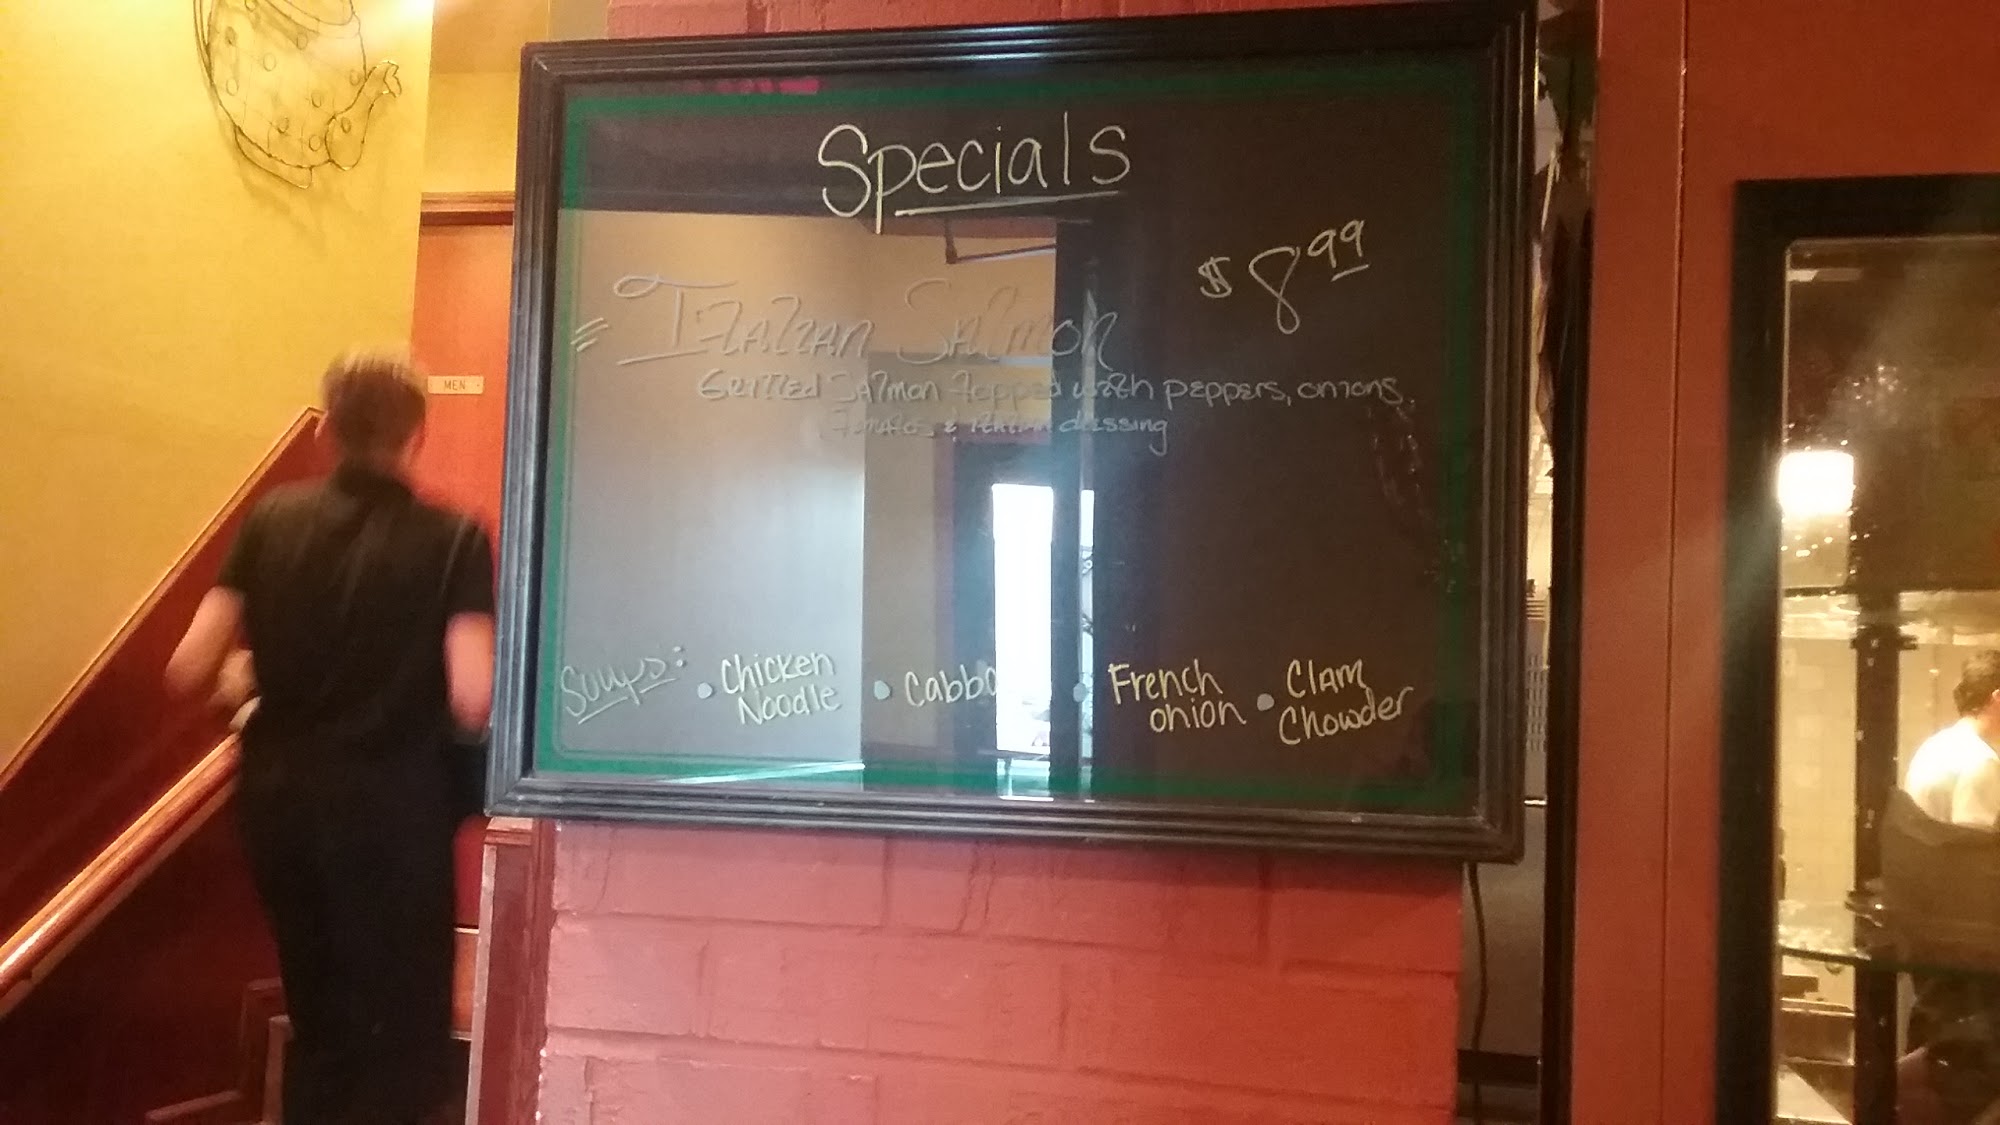 Specials
$8.99
Italian Salmon
Grilled Salmon topped with peppers, onions,
Tomatos & Italian dressing
Soups: • Chicken Noodle • Cabba • French Onion • Clam Chowder
MEN